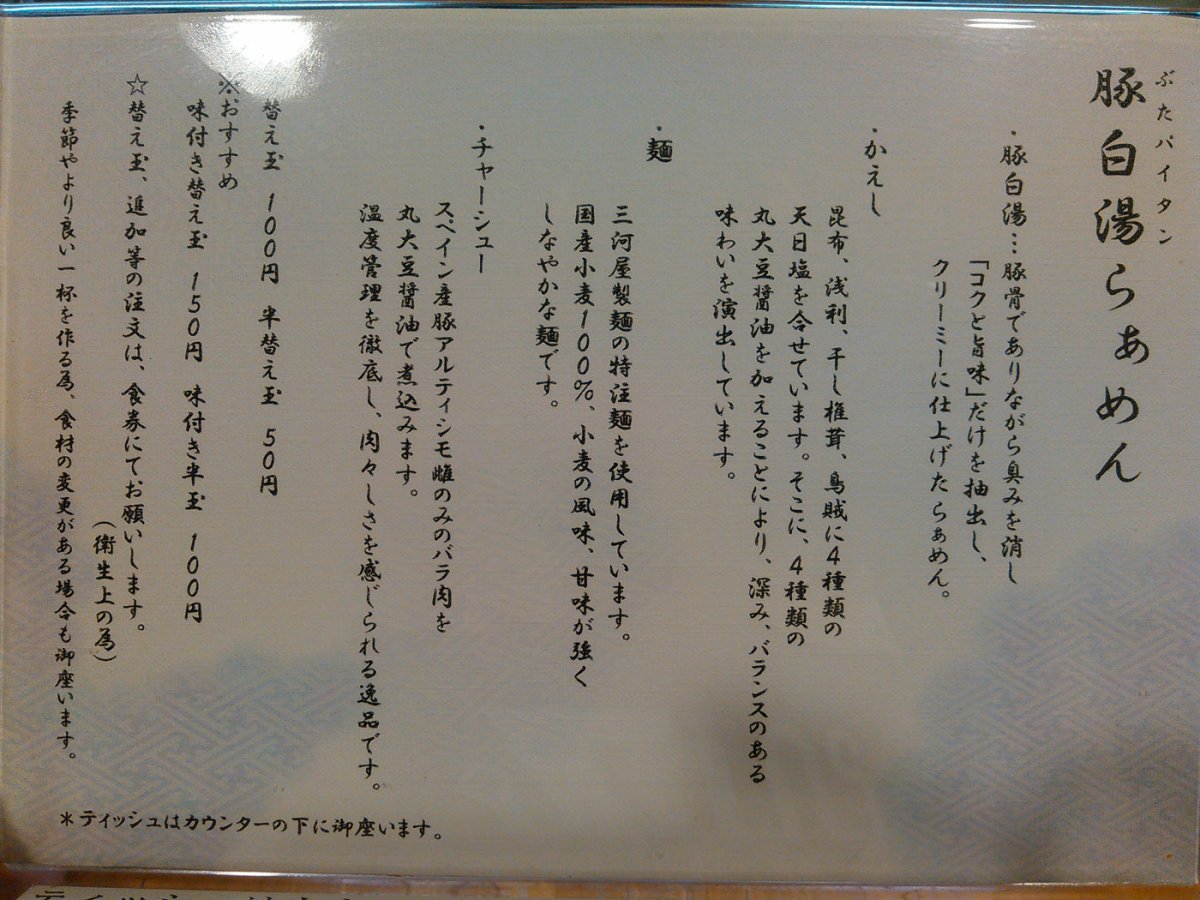 ぶたパイタン
豚白湯らぁめん
・豚白湯…豚骨でありながら臭みを消し
「コクと旨味」だけを抽出し、
クリーミーに仕上げたらぁめん。
・かえし
昆布、浅利、干し椎茸、烏賊に4種類の
天日塩を合せています。そこに、4種類の
丸大豆醤油を加えることにより、深み、バランスのある
味わいを演出しています。
・麺
三河屋製麺の特注麺を使用しています。
国産小麦100%、小麦の風味、甘味が強く
しなやかな麺です。
・チャーシュー
スペイン産豚アルティシモ雌のみのバラ肉を
丸大豆醤油で煮込みます。
温度管理を徹底し、肉々しさを感じられる逸品です。
替え玉 100円 半替え玉 50円
※おすすめ
味付き替え玉 150円 味付き半玉 100円
☆替え玉、追加等の注文は、食券にてお願いします。
(衛生上の為)
季節やより良い一杯を作る為、食材の変更がある場合も御座います。
＊ティッシュはカウンターの下に御座います。